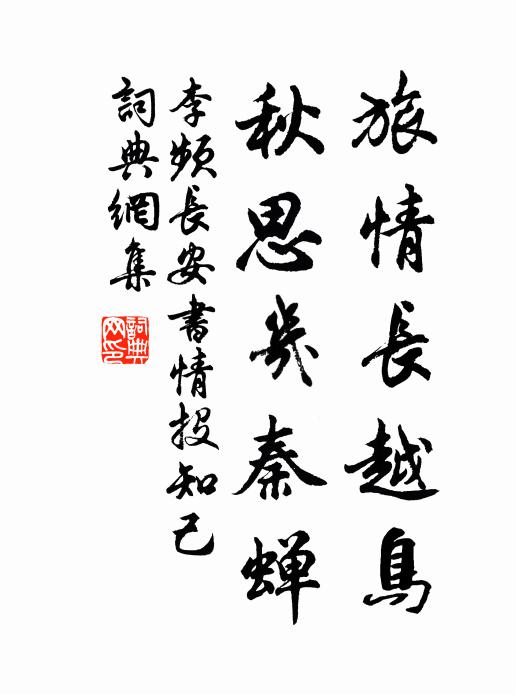 旅情長越鳥
秋思幾秦蝉
李頻長安書情投知己
詞典網集
詞典网印